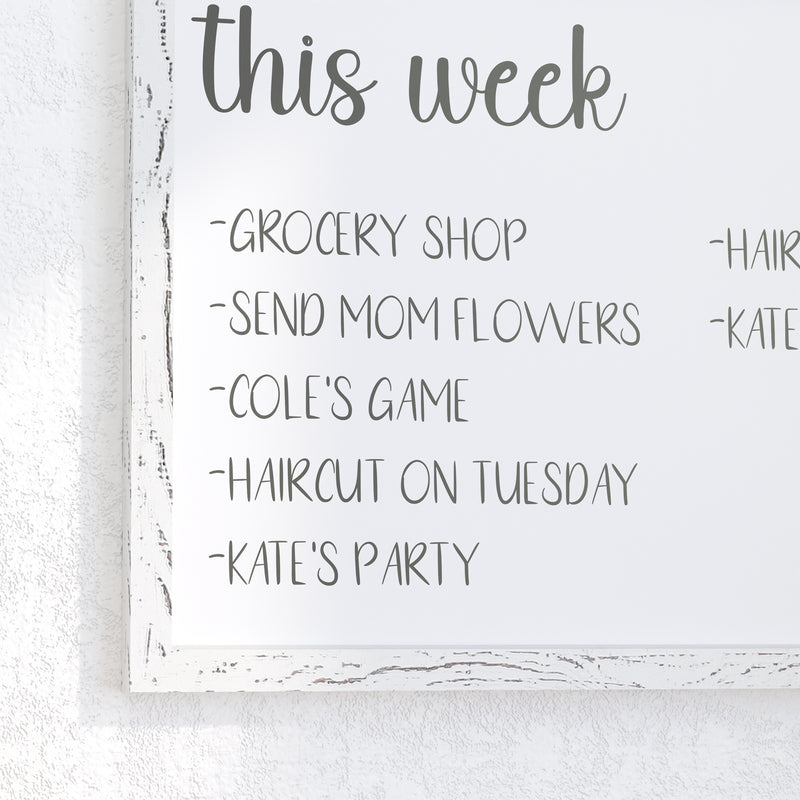 this week
-GROCERY SHOP
-SEND MOM FLOWERS
-COLE'S GAME
-HAIRCUT ON TUESDAY
-KATE'S PARTY
-HAIR
-KATE